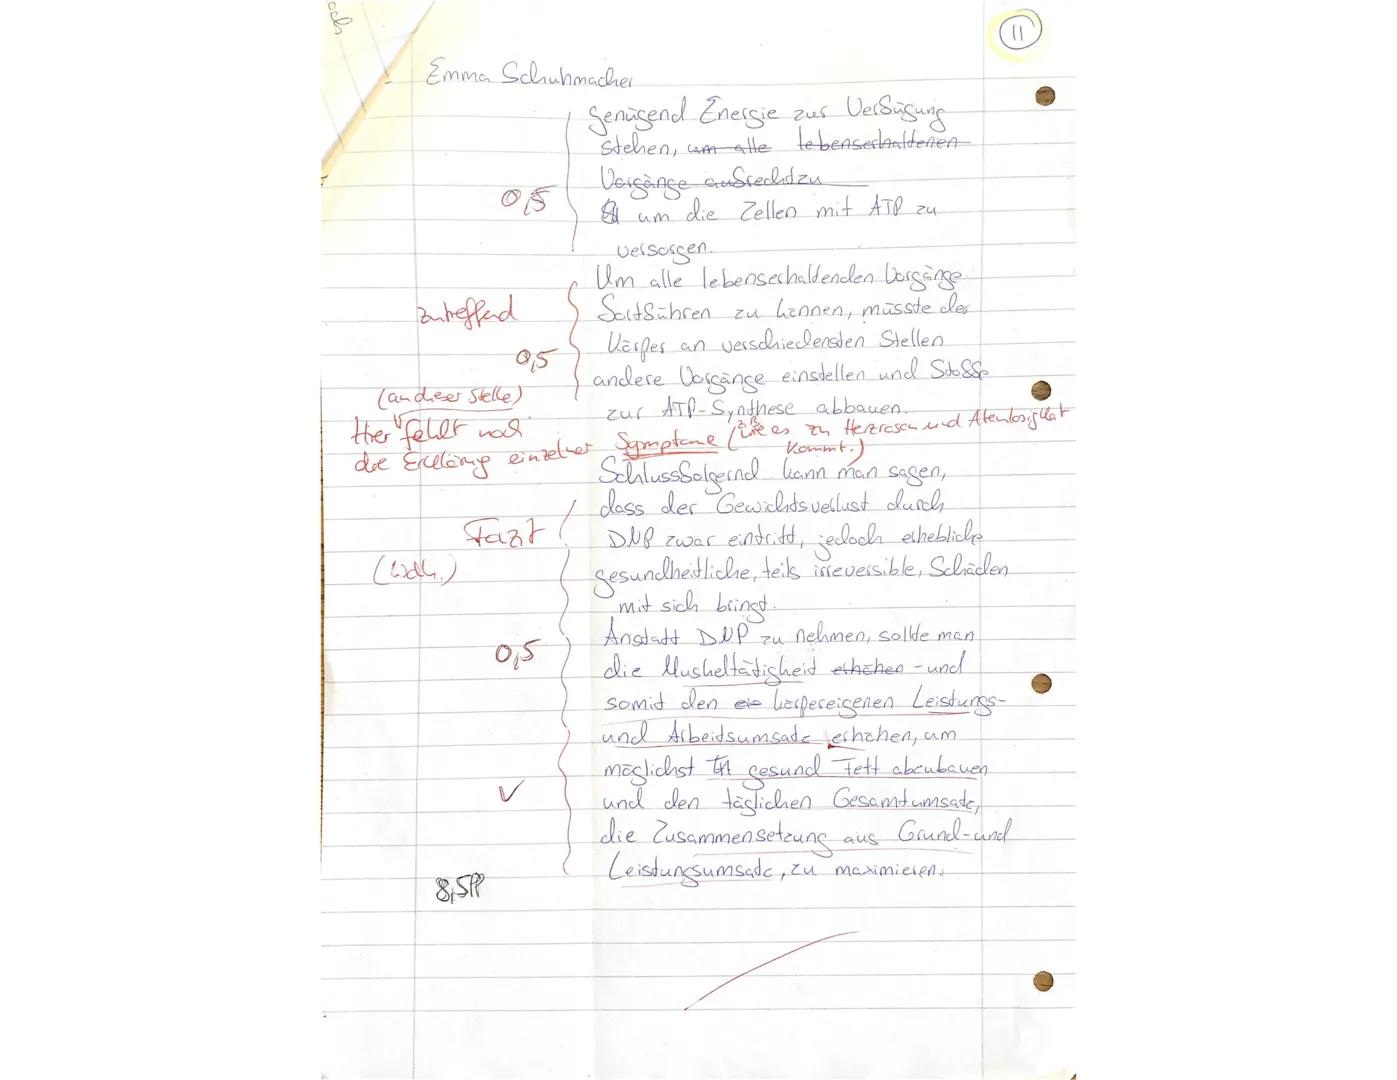 11
Emma Schuhmacher
genügend Energie zur Verfügung
stehen, um alle lebenserhaltenen
Vorgänge aufrechtzu
0,5
um die Zellen mit ATP zu
versorgen.
Um alle lebenserhaltenden Vorgänge
zutreffend
fortführen zu können, müsste der
Körper an verschiedensten Stellen
0,5
andere Vorgänge einstellen und Stoffe
(an dieser Stelle)
zur ATP-Synthese abbauen.
Hier fehlt noch
die Erklärung einzelner Symptome (z.B. wie es zu Herzrasen und Atemlosigkeit
kommt.)
Schlussfolgernd kann man sagen,
dass der Gewichtsverlust durch
Fazit
DNP zwar eintritt, jedoch erhebliche
(Wdh.)
gesundheitliche, teils irreversible, Schäden
mit sich bringt.
Anstatt DNP zu nehmen, sollte man
0,5
die Muskeltätigkeit erhöhen - und
somit den körpereigenen Leistungs-
und Arbeitsumsatz erhöhen, um
möglichst gesund Fett abzubauen
✓
und den täglichen Gesamtumsatz,
die Zusammensetzung aus Grund- und
Leistungsumsatz, zu maximieren.
8,5P